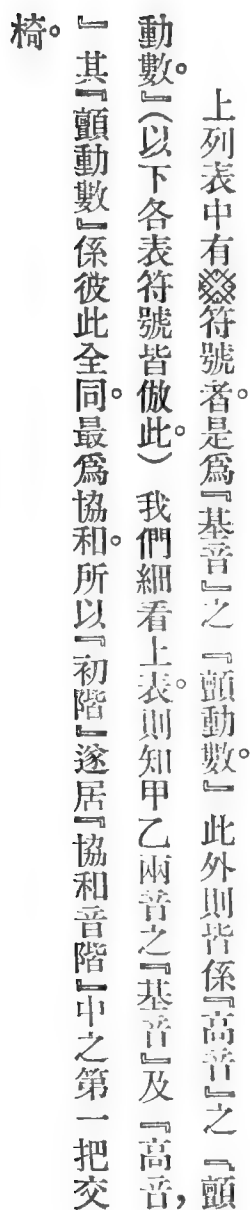 上列表中有※符號者。是爲『基音』之『顫動數。』此外則皆係『高音』之『顫
動數。』(以下各表符號皆倣此。)我們細看上表。則知甲乙兩音之『基音』及『高音,
』其『顫動數』係彼此全同。最爲協和。所以『初階』遂居『協和音階』中之第一把交
椅。